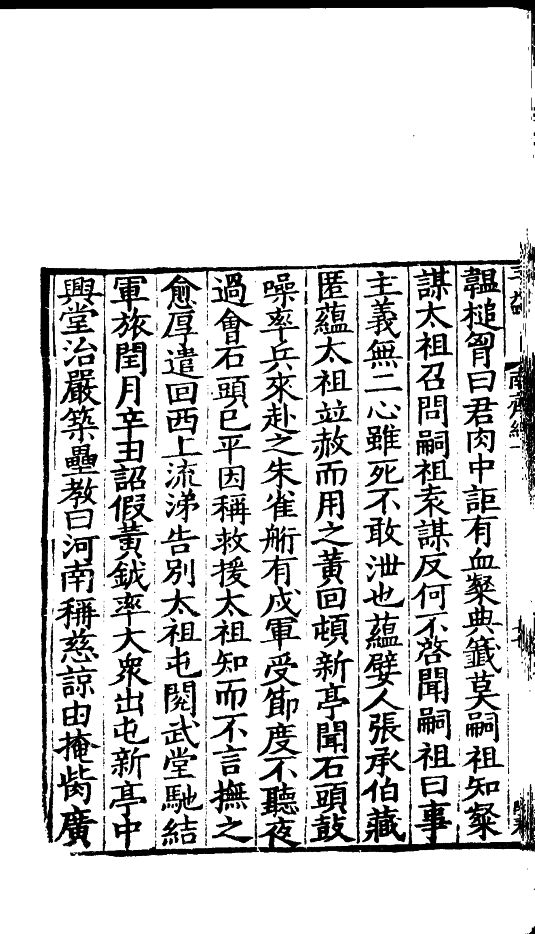 韞槌胷曰君肉中詎有血粲典籤莫嗣祖知粲
謀太祖召問嗣祖袁謀反何不啓聞嗣祖曰事
主義無二心雖死不敢泄也蘊嬖人張承伯藏
匿蘊太祖竝赦而用之黄回頓新亭聞石頭鼓
噪率兵來赴之朱雀䑨有戍軍受節度不聽夜
過會石頭已平因稱救援太祖知而不言撫之
愈厚遣回西上流涕告別太祖屯閱武堂馳結
軍旅閏月辛丑詔假黄鉞率大衆出屯新亭中
興堂治嚴築壘教曰河南稱慈諒由掩胔廣